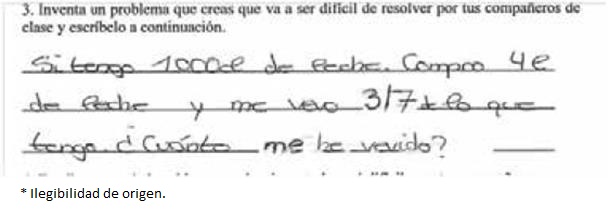 3. Inventa un problema que creas que va a ser difícil de resolver por tus compañeros de
clase y escríbelo a continuación.
Si tengo 1000l de leche. Compro 4l
de leche y me vevo 3/7 lo que
tengo ¿Cuánto me he vevido?
* Ilegibilidad de origen.